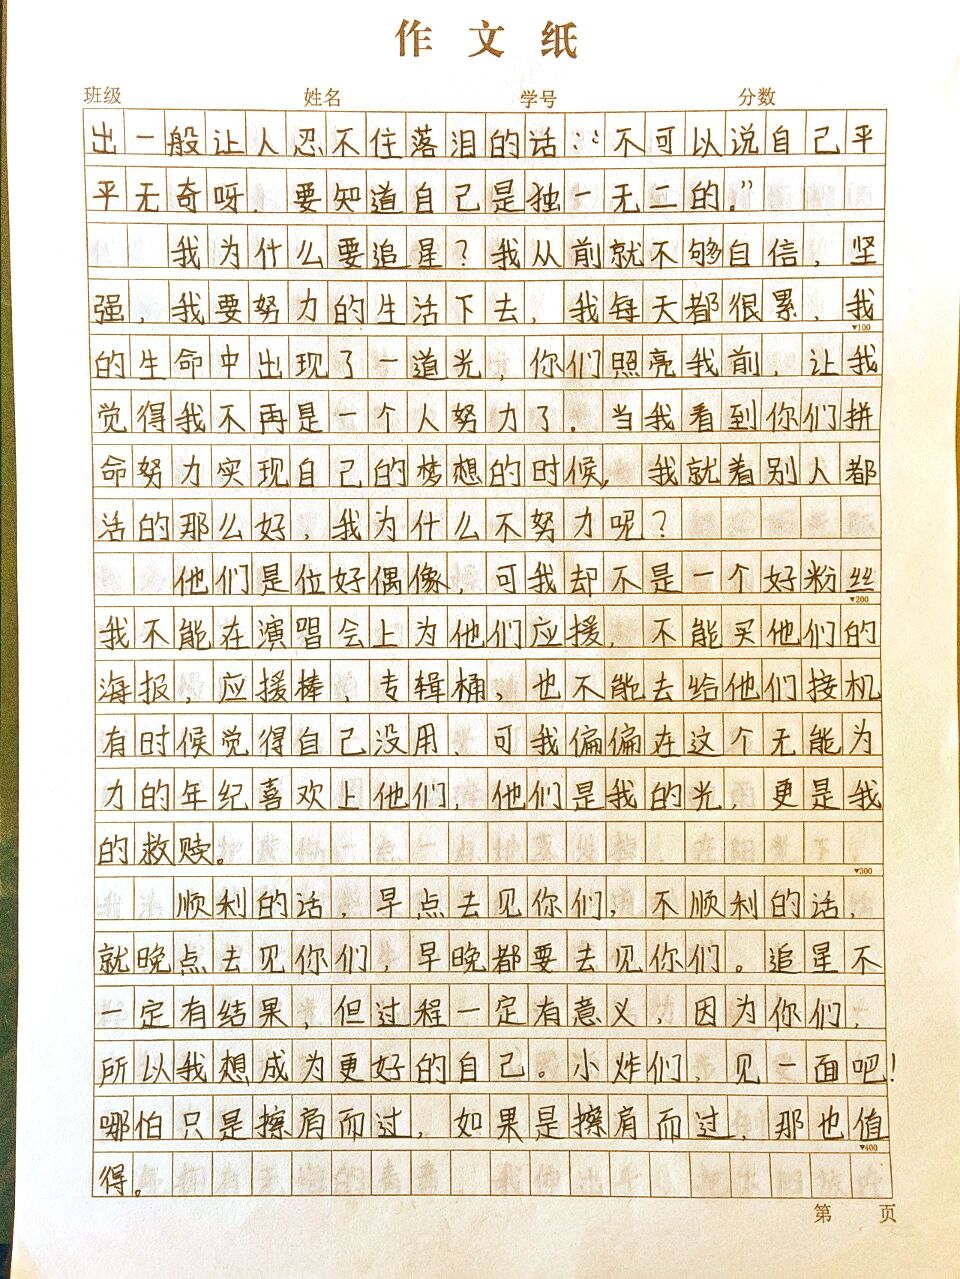 作文纸
班级 姓名 学号 分数
出一般让人忍不住落泪的话:“不可以说自己平
平无奇呀,要知道自己是独一无二的。”
我为什么要追星?我从前就不够自信,坚
强,我要努力的生活下去,我每天都很累,我
▼100
的生命中出现了一道光,你们照亮我前,让我
觉得我不再是一个人努力了.当我看到你们拼
命努力实现自己的梦想的时候,我就着别人都
活的那么好,我为什么不努力呢?
他们是位好偶像,可我却不是一个好粉丝
▼200
我不能在演唱会上为他们应援,不能买他们的
海报,应援棒,专辑桶,也不能去给他们接机
有时候觉得自己没用,可我偏偏在这个无能为
力的年纪喜欢上他们,他们是我的光,更是我
的救赎。
▼300
顺利的话,早点去见你们,不顺利的话,
就晚点去见你们,早晚都要去见你们。追星不
一定有结果,但过程一定有意义,因为你们,
所以我想成为更好的自己。小炸们,见一面吧!
哪怕只是擦肩而过,如果是擦肩而过,那也值
▼400
得。
第 页